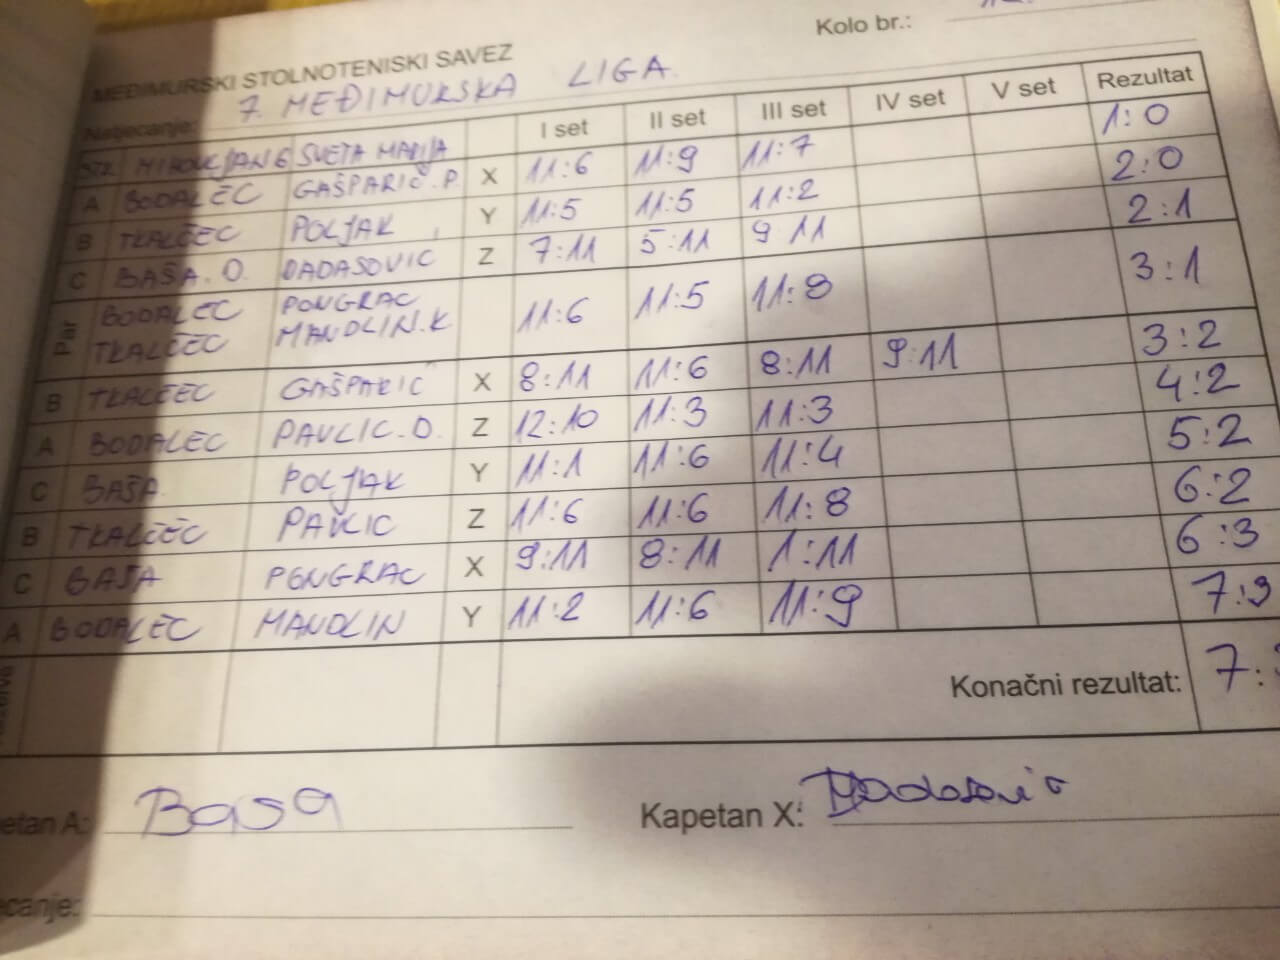 Kolo br.:
MEĐIMURSKI STOLNOTENISKI SAVEZ
Natjecanje: 7. MEĐIMURSKA LIGA
I set II set III set IV set V set Rezultat
STR. SVETA MARIJA
A BODALEC GAŠPARIČ.P. X 11:6 11:9 11:7 1:0
B TKALČEC POLJAK Y 11:5 11:5 11:2 2:0
C BAŠA.O. DADASOVIC Z 7:11 5:11 9 11 2:1
Par BODALEC PONGRAC 11:6 11:5 11:8 3:1
TKALČEC MANDLIN.K
B TKALČEC GAŠPARIC X 8:11 11:6 8:11 9:11 3:2
A BODALEC PAVLIC.D. Z 12:10 11:3 11:3 4:2
C BAŠA POLJAK Y 11:1 11:6 11:4 5:2
B TKALČEC PAVLIC Z 11:6 11:6 11:8 6:2
C BAŠA PONGRAC X 9:11 8:11 1:11 6:3
A BODALEC MANDLIN Y 11:2 11:6 11:9 7:3
Konačni rezultat: 7:
etan A: Basa Kapetan X: Dadasovic
ecanje: